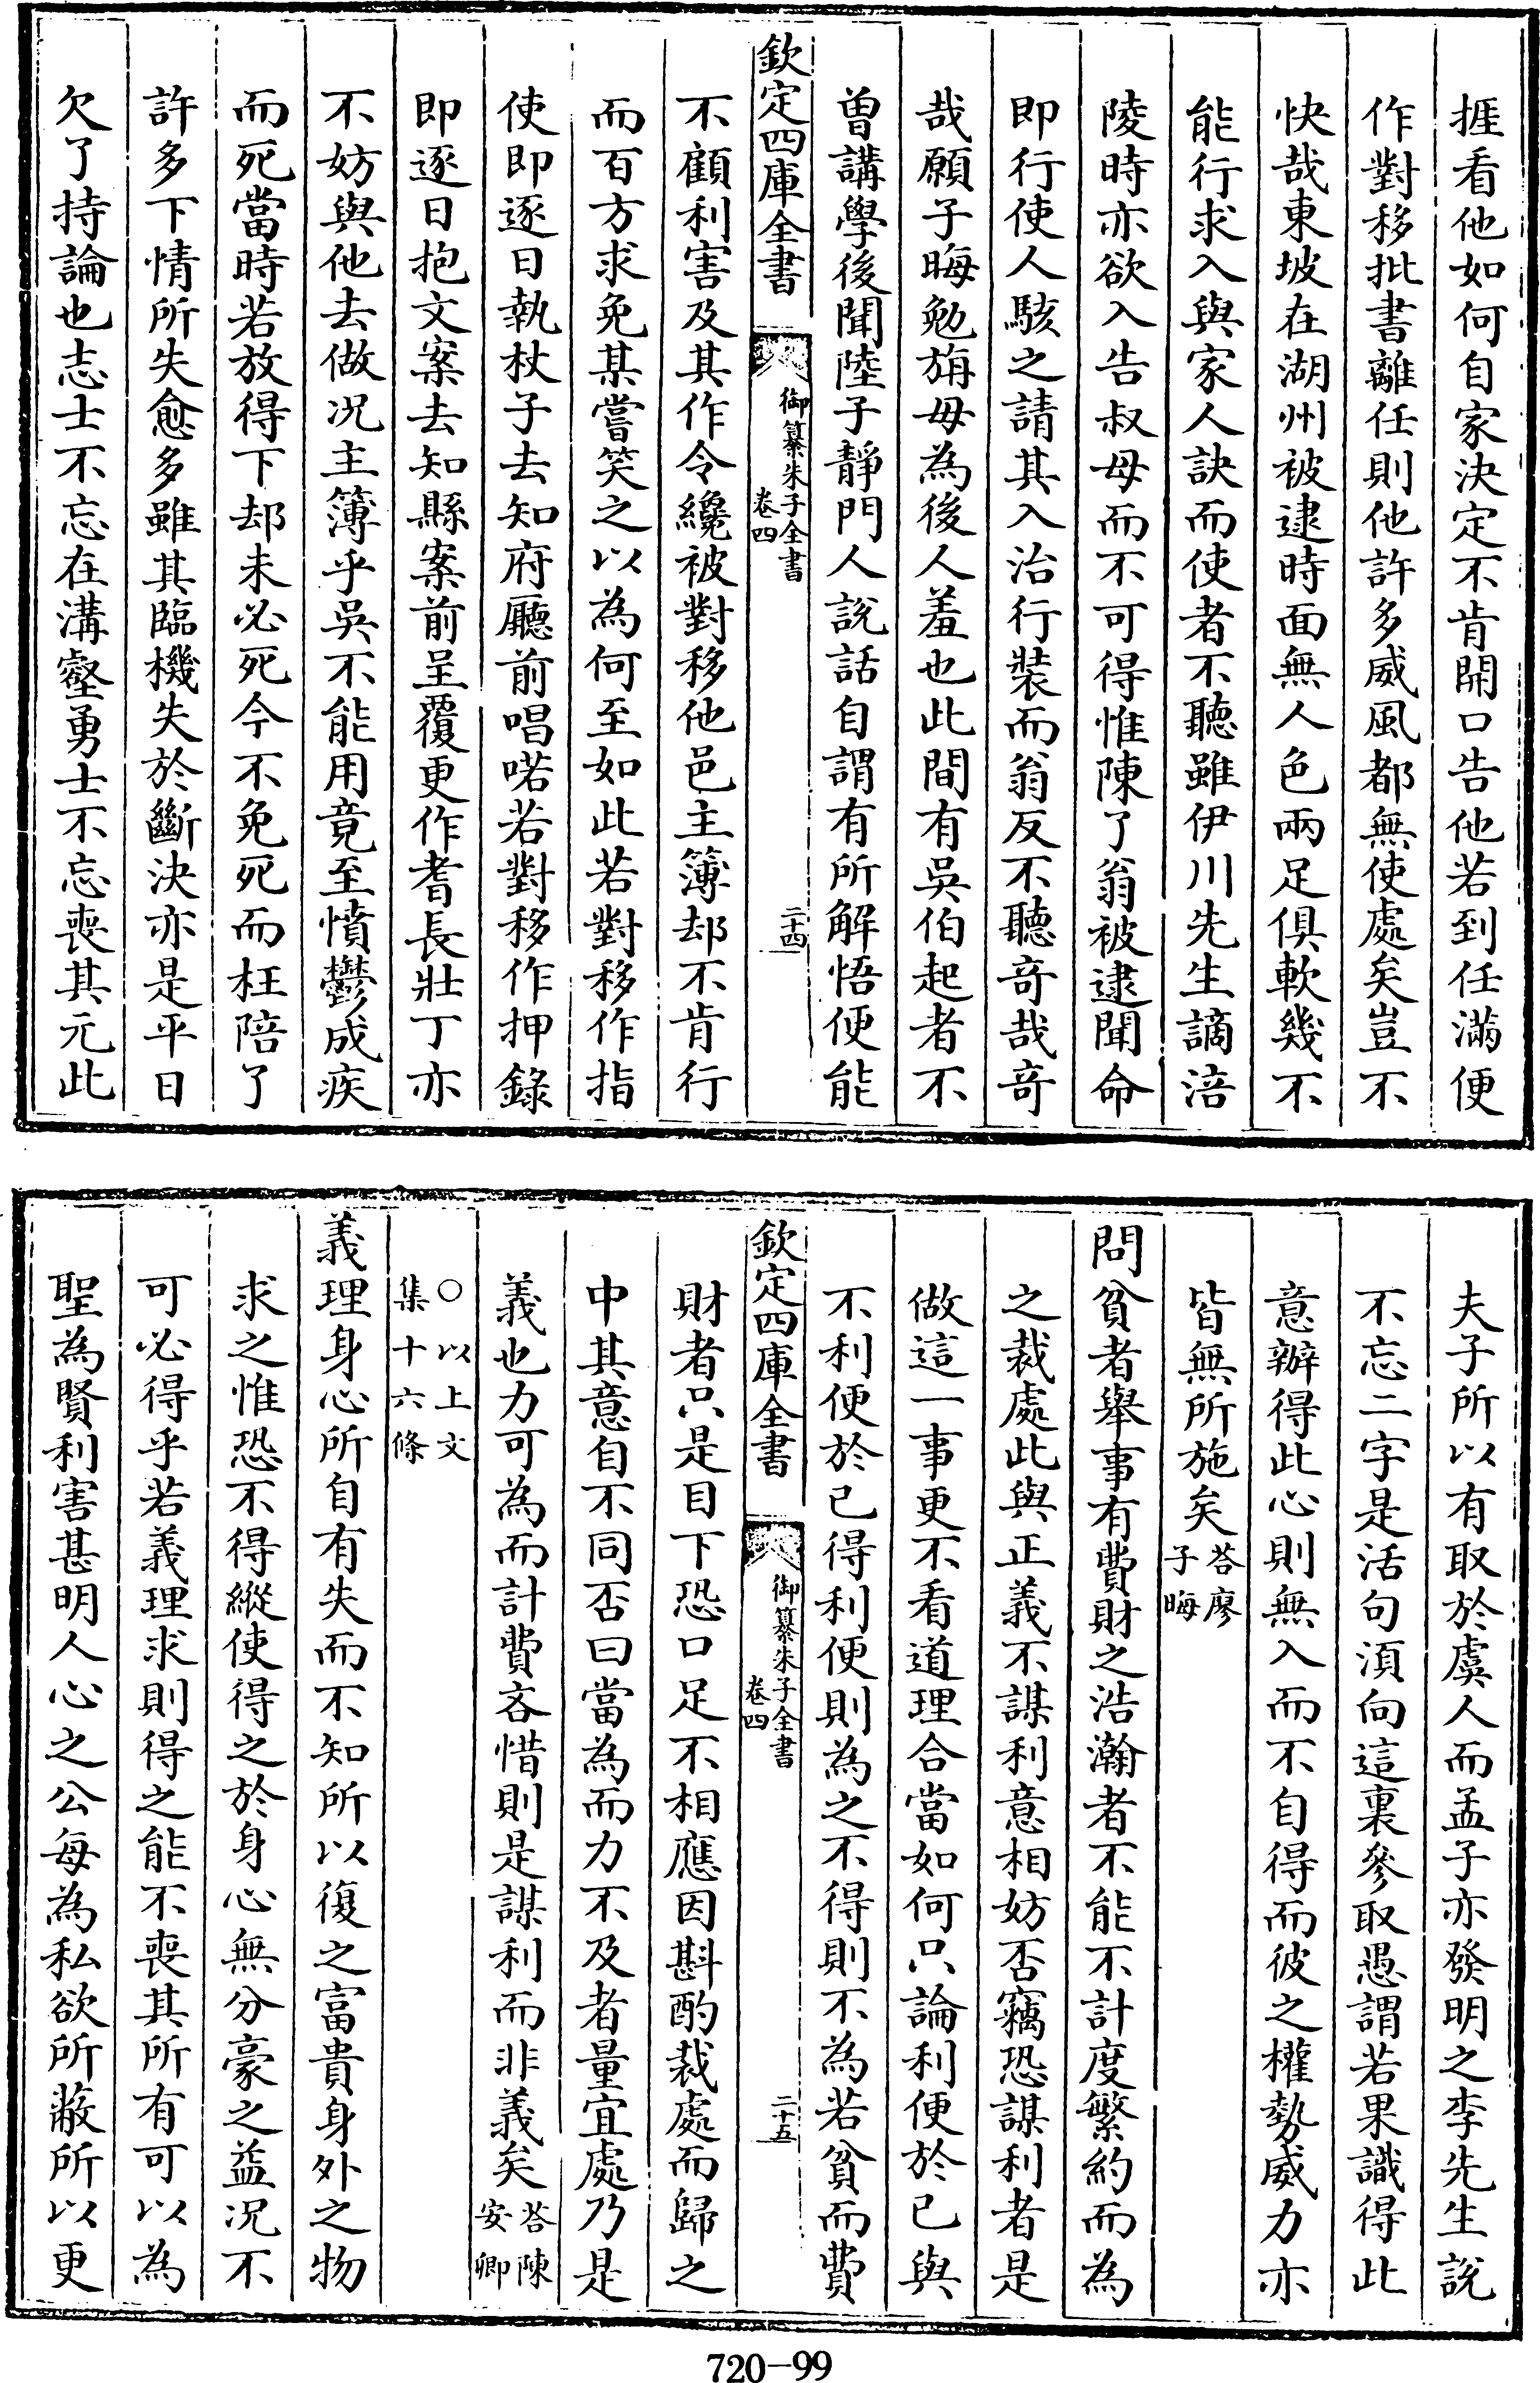 捱看他如何自家決定不肯開口告他若到任滿便
作對移批書離任則他許多威風都無使處矣豈不
快哉東坡在湖州被逮時面無人色兩足俱軟幾不
能行求入與家人訣而使者不聽雖伊川先生謫涪
陵時亦欲入告叔母而不可得惟陳了翁被逮聞命
即行使人駭之請其入治行裝而翁反不聽奇哉奇
哉願子晦勉旃毋為後人羞也此間有吳伯起者不
曾講學後聞陸子靜門人說話自謂有所解悟便能
欽定四庫全書
御纂朱子全書
卷四
二十四
不顧利害及其作令纔被對移他邑主簿却不肯行
而百方求免某嘗笑之以為何至如此若對移作指
使即逐日執杖子去知府廳前唱喏若對移作押錄
即逐日抱文案去知縣案前呈覆更作耆長壯丁亦
不妨與他去做况主簿乎吳不能用竟至憤鬱成疾
而死當時若放得下却未必死今不免死而枉陪了
許多下情所失愈多雖其臨機失於斷決亦是平日
欠了持論也志士不忘在溝壑勇士不忘喪其元此
夫子所以有取於虞人而孟子亦發明之李先生說
不忘二字是活句湏向這裏參取愚謂若果識得此
意辦得此心則無入而不自得而彼之權勢威力亦
皆無所施矣答廖
子晦
問貧者舉事有費財之浩瀚者不能不計度繁約而為
之裁處此與正義不謀利意相妨否竊恐謀利者是
做這一事更不看道理合當如何只論利便於己與
不利便於己得利便則為之不得則不為若貧而費
欽定四庫全書
御纂朱子全書
卷四
二十五
財者只是目下恐口足不相應因斟酌裁處而歸之
中其意自不同否曰當為而力不及者量宜處乃是
義也力可為而計費吝惜則是謀利而非義矣答陳
安卿
○以上文
集十六條
義理身心所自有失而不知所以復之富貴身外之物
求之惟恐不得縱使得之於身心無分豪之益况不
可必得乎若義理求則得之能不喪其所有可以為
聖為賢利害甚明人心之公每為私欲所蔽所以更
720-99